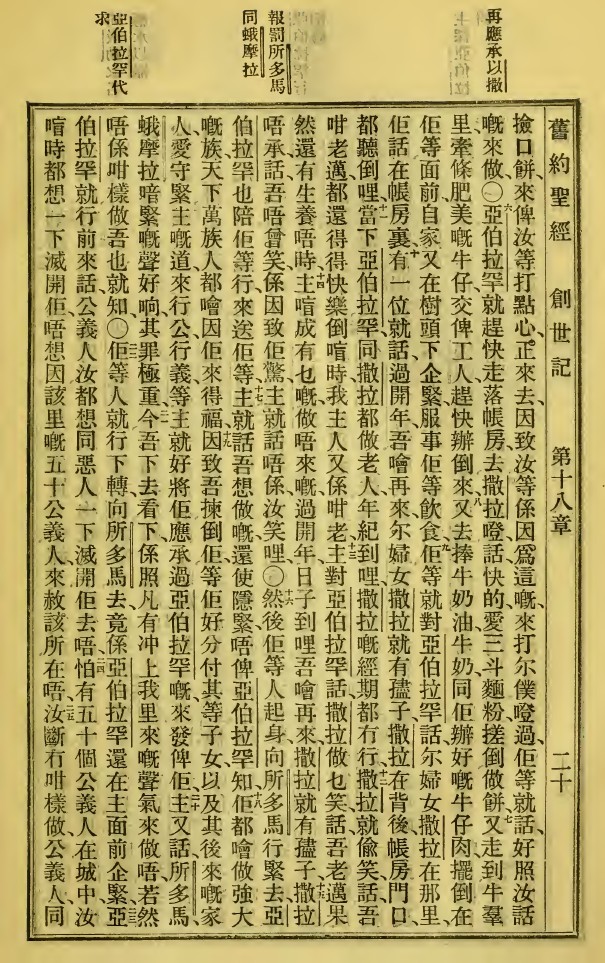 再應承以撒
報罰所多馬
同蛾摩拉
亞伯拉罕代
求
舊約聖經 創世記 第十八章 二十
撿口餅來俾汝等打點心正來去因致汝等係因爲這嘅來打尔僕嘜過佢等就話好照汝話
嘅來做〇六亞伯拉罕就趕快走落帳房去撒拉嘜話快的愛三斗麵粉搓倒做餅七又走到牛羣
里牽條肥美嘅牛仔交俾工人趕快辦倒來八又去捧牛奶油牛奶同佢辦好嘅牛仔肉擺倒在
佢等面前自家又在樹頭下企緊服事佢等飮食九佢等就對亞伯拉罕話尔婦女撒拉在那里
佢話在帳房裏十有一位就話過開年吾噲再來尔婦女撒拉就有孻子撒拉在背後帳房門口
都聽倒哩十一當下亞伯拉罕同撒拉都做老人年紀到哩撒拉嘅經期都冇行十二撒拉就偷笑話吾
咁老邁都還得得快樂倒喧時我主人又係咁老十三主對亞伯拉罕話撒拉做乜笑話吾老邁果
然還有生養唔時十四主喧成有乜嘅做唔來嘅過開年日子到哩吾噲再來撒拉就有孻子十五撒拉
唔承話吾唔曾笑係因致佢驚主就話唔係汝笑哩〇十六然後佢等人起身向所多馬行緊去亞
伯拉罕也陪佢等行來送佢等十七主就話吾想做嘅還使隱緊唔俾亞伯拉罕知十八佢都噲做強大
嘅族天下萬族人都噲因佢來得福十九因致吾揀倒佢等佢好分付其等子女以及其後來嘅家
人愛守緊主嘅道來行公行義等主就好將佢應承過亞伯拉罕嘅來發俾佢二十主又話所多馬
蛾摩拉喑緊嘅聲好响其罪極重二一今吾下去看下係照凡有冲上我里來嘅聲氣來做唔若然
唔係咁樣做吾也就知〇二二佢等人就行下轉向所多馬去竟係亞伯拉罕還在主面前企緊二三亞
伯拉罕就行前來話公義人汝都想同惡人一下滅開佢去唔二四怕有五十個公義人在城中汝
喧時都想一下滅開佢唔想因該里嘅五十公義人來赦該所在唔二五汝斷冇咁樣做公義人同